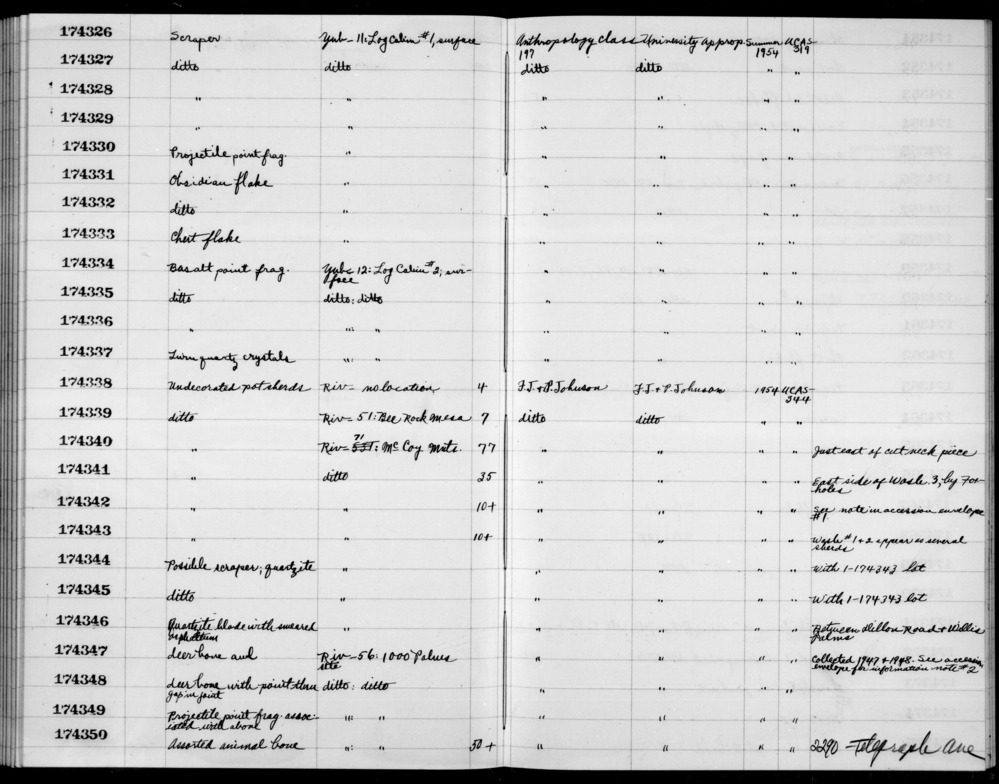 174326 Scraper Yub-11: Log Cabin #1, surface Anthropology class 197 University Approp. Summer 1954 UCAS-319
174327 ditto ditto ditto ditto " "
174328 " " " " " "
174329 " " " " " "
174330 Projectile point frag. " " " " "
174331 Obsidian flake " " " " "
174332 ditto " " " " "
174333 Chert flake " " " " "
174334 Basalt point frag. Yub-12: Log Cabin #2, surface " " " "
174335 ditto ditto: ditto " " " "
174336 " ": " " " " "
174337 Two quartz crystals ": " " " " "
174338 Undecorated pot sherds Riv- no location 4 F.J. + P. Johnson F.J. + P. Johnson 1954 UCAS-344
174339 ditto Riv-51: Bee Rock Mesa 7 ditto ditto " "
174340 " Riv-71: McCoy Mnts. 77 " " " " Just east of cut neck piece
174341 " ditto 35 " " " " East side of Wash 3, by holes
174342 " " 10+ " " " " See note in accession envelope #1.
174343 " " 10+ " " " " Wash #1+2 appear as several sherds
174344 Possible scraper; quartzite " " " " " With 1-174343 lot
174345 ditto " " " " " With 1-174343 lot
174346 Quartzite blade with smeared asphaltum " " " " " Between Dillon Road + Willis Palms
174347 deer bone awl Riv-56: 1000 Palms site " " " " Collected 1947 + 1948. See accession envelope for information note #2
174348 deer bone with point thru gap in joint ditto: ditto " " " "
174349 Projectile point frag. associated with above ": " " " " "
174350 Assorted animal bone ": " 50+ " " " " 2290 Telegraph Ave